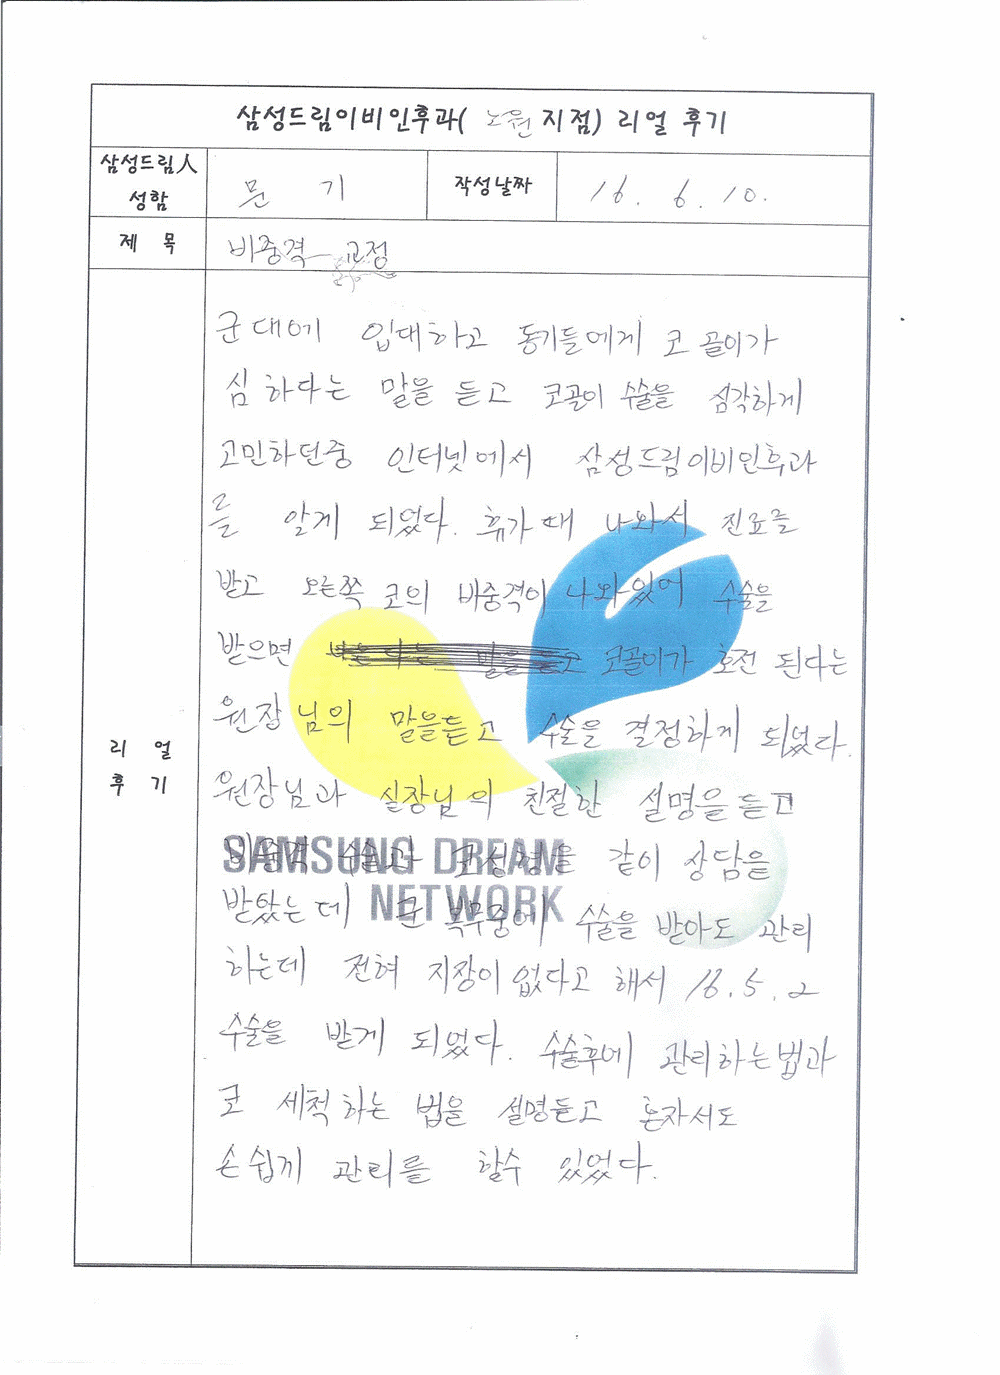 삼성드림이비인후과( 노원 지점) 리얼 후기
삼성드림人 성함
문 기
작성날짜
16. 6. 10.
제 목
비중격 교정
리 얼 후 기
군대에 입대하고 동기들에게 코 골이가
심 하다는 말을 듣고 코골이 수술을 심각하게
고민하던중 인터넷에서 삼성드림이비인후과
를 알게 되었다. 휴가 때 나와서 진료를
받고 오른쪽 코의 비중격이 나와있어 수술을
받으면 코골이가 호전 된다는
원장님의 말을듣고 수술을 결정하게 되었다.
원장님과 실장님의 친절한 설명을 듣고
비중격 수술과 코성형을 같이 상담을
받았는데 군 복무중에 수술을 받아도 관리
하는데 전혀 지장이 없다고 해서 16.5.2
수술을 받게 되었다. 수술후에 관리하는법과
코 세척하는 법을 설명듣고 혼자서도
손쉽게 관리를 할수 있었다.
SAMSUNG DREAM
NETWORK